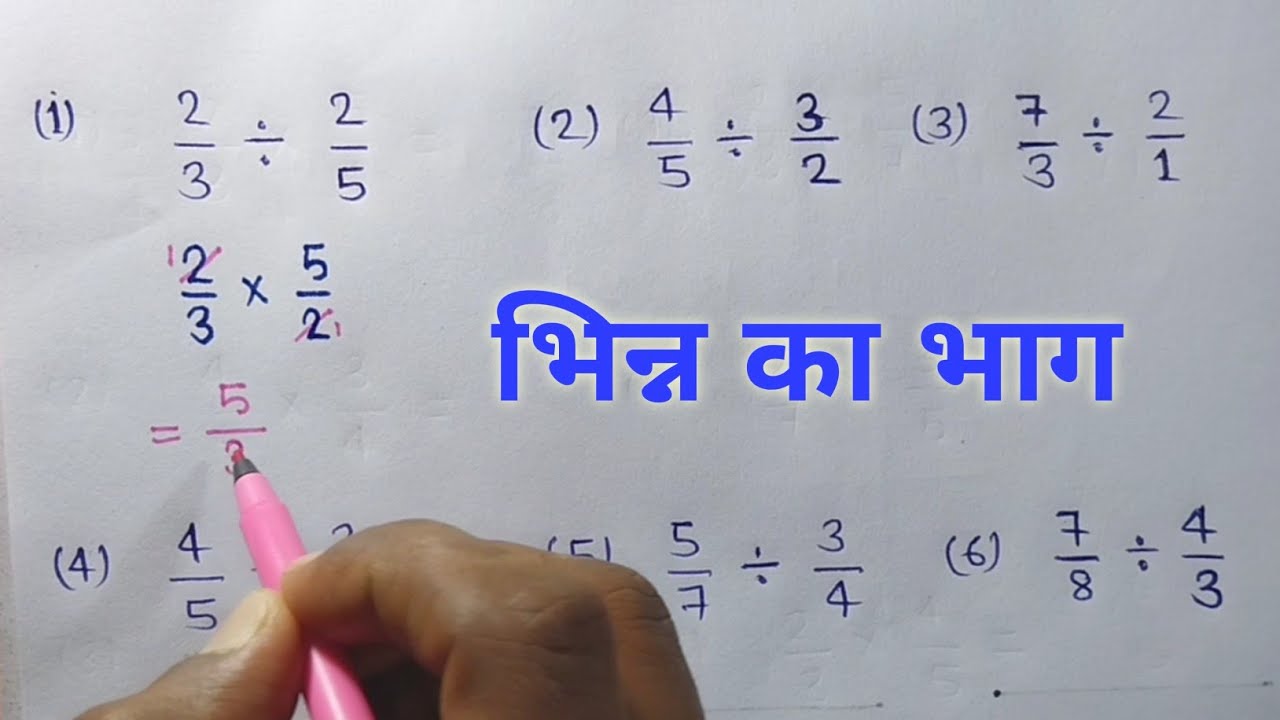 (1) 2/3 ÷ 2/5 (2) 4/5 ÷ 3/2 (3) 7/3 ÷ 2/1
2/3 × 5/2
भिन्न का भाग
= 5/3
(4) 4/5 (5) 5/7 ÷ 3/4 (6) 7/8 ÷ 4/3